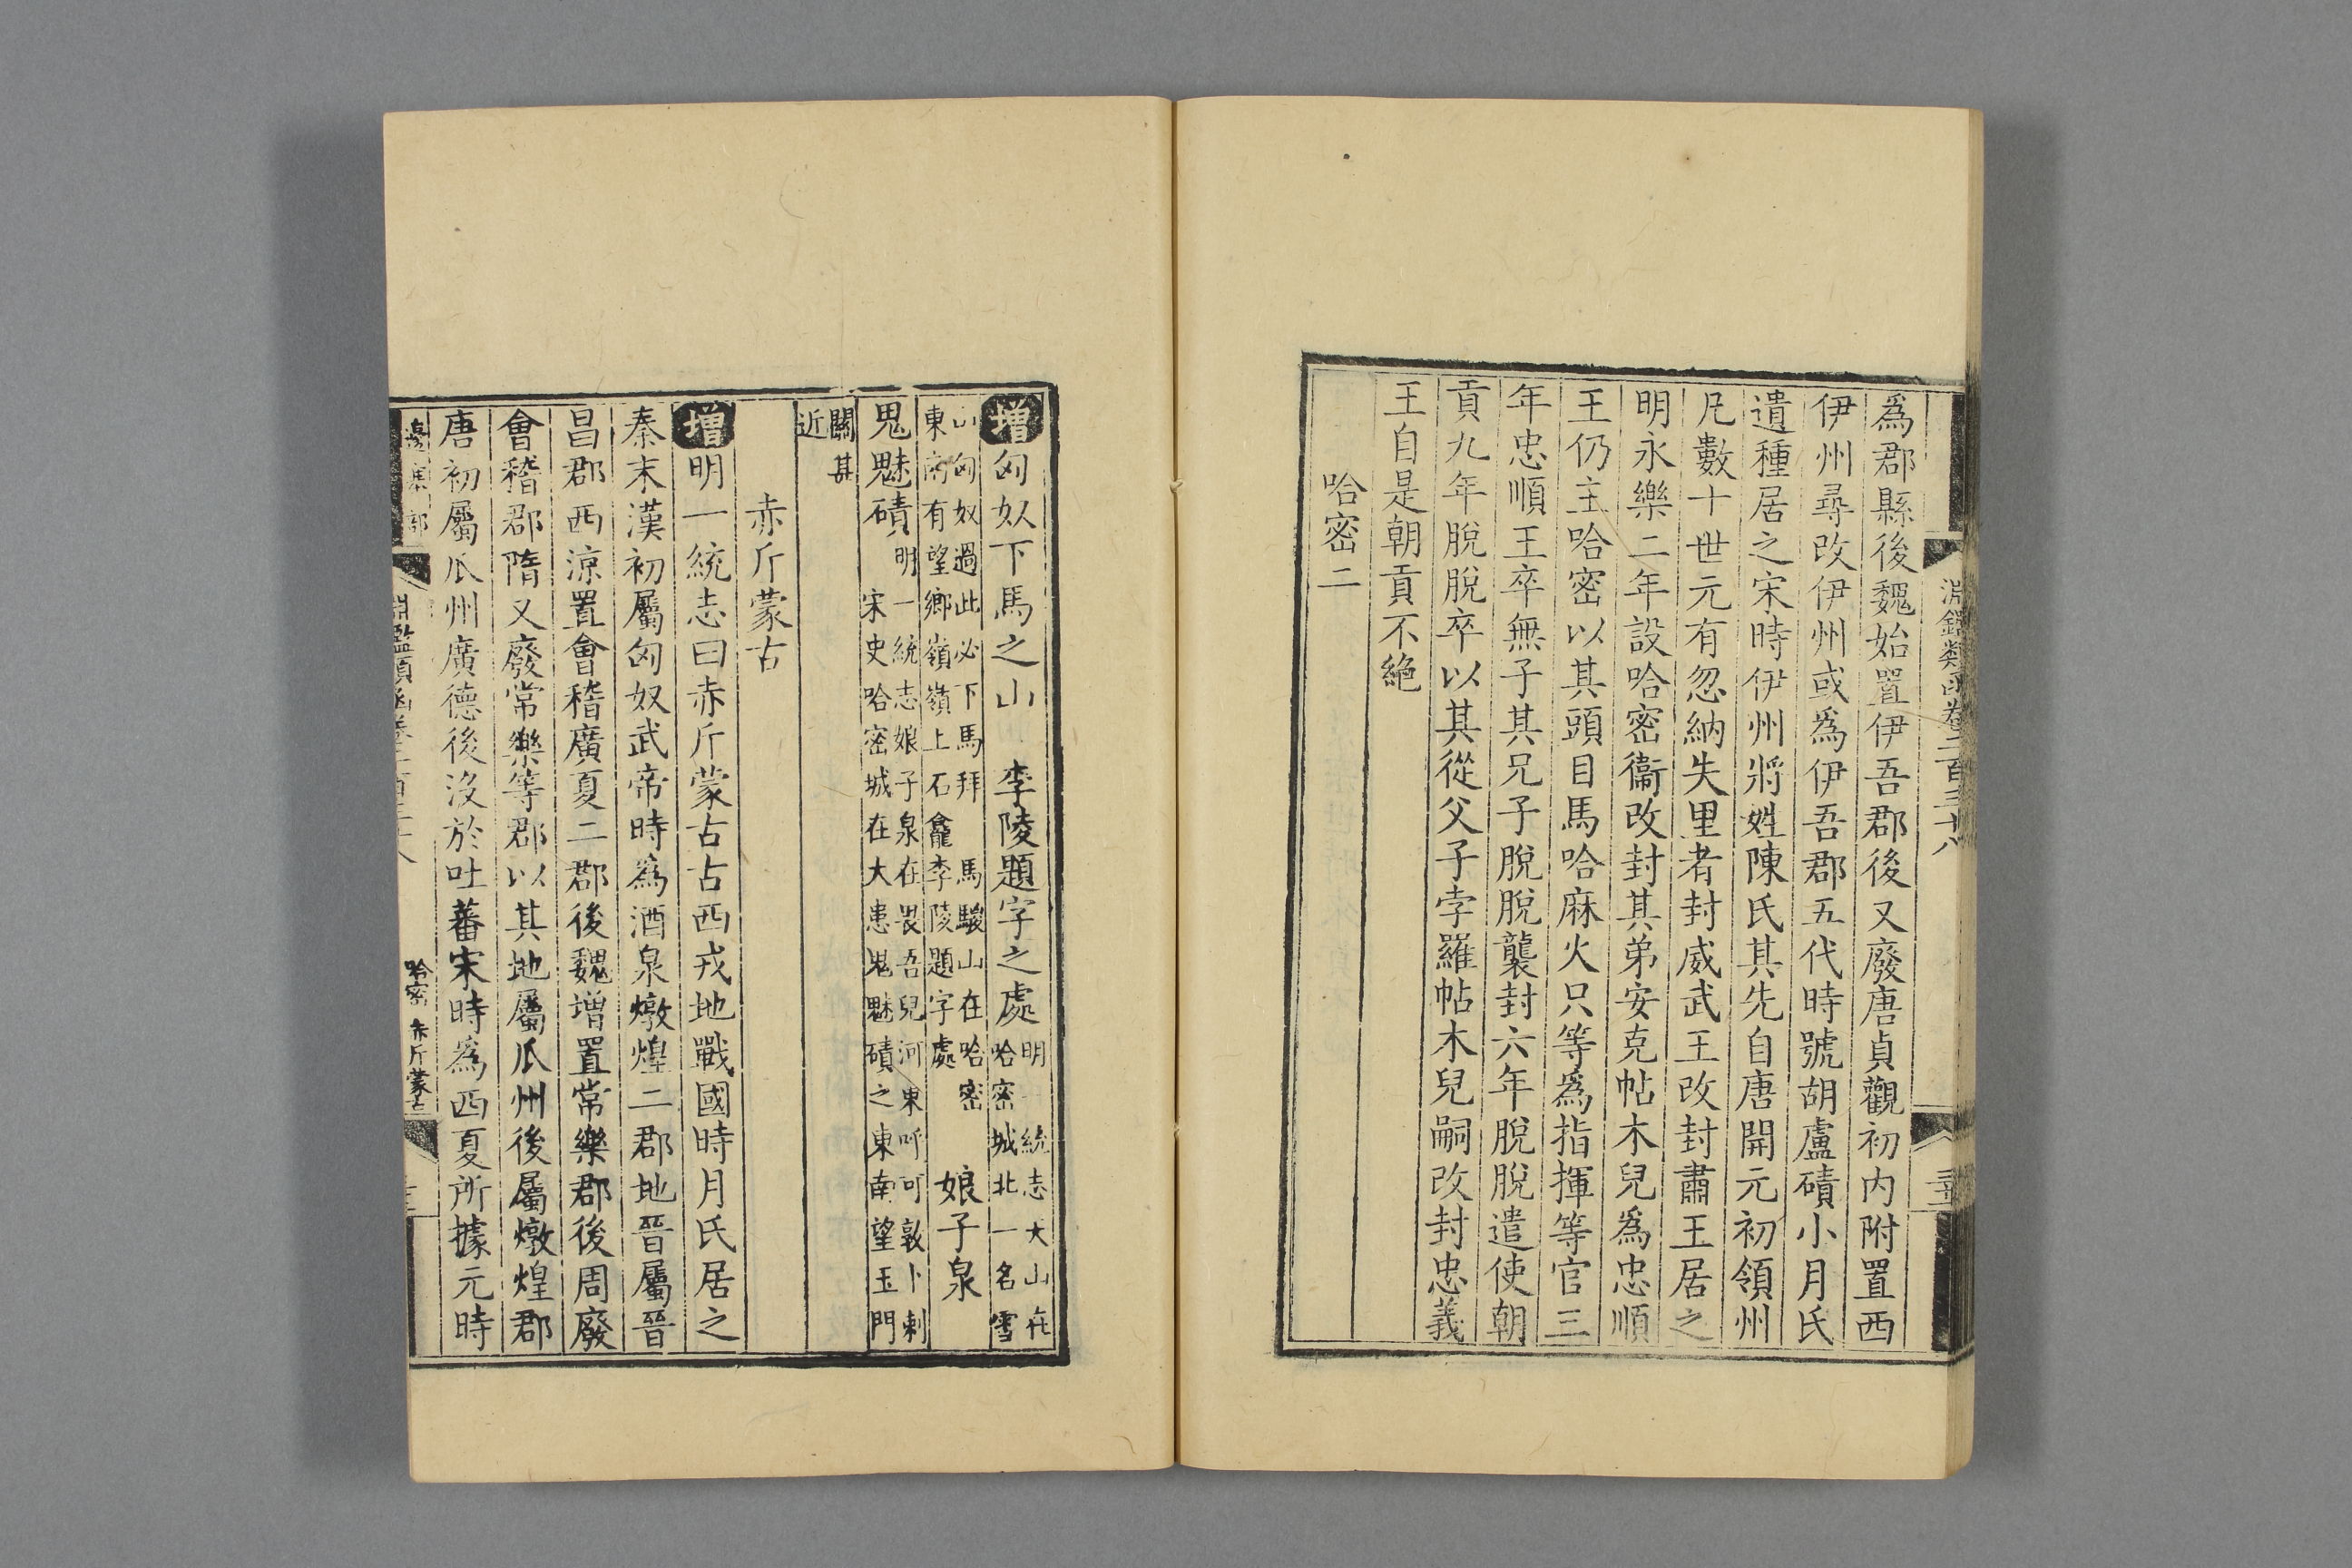 淵鑑類函卷二百三十八
爲郡縣後魏始置伊吾郡後又廢唐貞觀初内附置西
伊州尋改伊州或爲伊吾郡五代時號胡盧磧小月氏
遺種居之宋時伊州將姓陳氏其先自唐開元初領州
凡數十世元有忽納失里者封威武王改封肅王居之
明永樂二年設哈密衞改封其弟安克帖木兒爲忠順
王仍主哈密以其頭目馬哈麻火只等爲指揮等官三
年忠順王卒無子其兄子脫脫襲封六年脫脫遣使朝
貢九年脫脫卒以其從父子孛羅帖木兒嗣改封忠義
王自是朝貢不絶
哈密二
增匈奴下馬之山 李陵題字之處
明一統志大山在
哈密城北一名雪
山匈奴過此必下馬拜 馬騣山在哈密
東南有望鄉嶺嶺上石龕李陵題字處
娘子泉
鬼魅磧
明一統志娘子泉在畏吾兒河東呼可敦卜剌
宋史哈密城在大患鬼魅磧之東南望玉門
關甚
近
赤斤蒙古
增明一統志曰赤斤蒙古古西戎地戰國時月氏居之
秦末漢初屬匈奴武帝時爲酒泉燉煌二郡地晉屬晉
昌郡西涼置會稽廣夏二郡後魏增置常樂郡後周廢
會稽郡隋又廢常樂等郡以其地屬瓜州後屬燉煌郡
唐初屬瓜州廣德後沒於吐蕃宋時爲西夏所據元時
邊塞部
哈密 赤斤蒙古